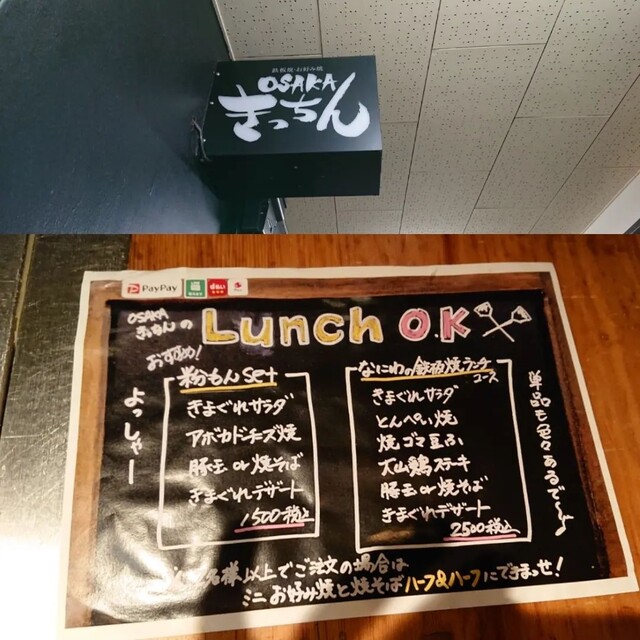 鉄板焼・お好み焼
OSAKA
きっちん
PayPay
d払い
OSAKA
きっちんの
おすすめ!
Lunch OK
よっしゃー
粉もんset
きまぐれサラダ
アボカドチーズ焼
豚玉 or 焼そば
きまぐれデザート
1500税込
なにわの鉄板焼ランチ
コース
きまぐれサラダ
とんぺい焼
焼ゴマ豆ふ
大山鶏ステーキ
豚玉 or 焼そば
きまぐれデザート
2500税込
単品も色々あるで〜
名様以上でご注文の場合は
ミニお好み焼と焼そばハーフ&ハーフにできまっせ!